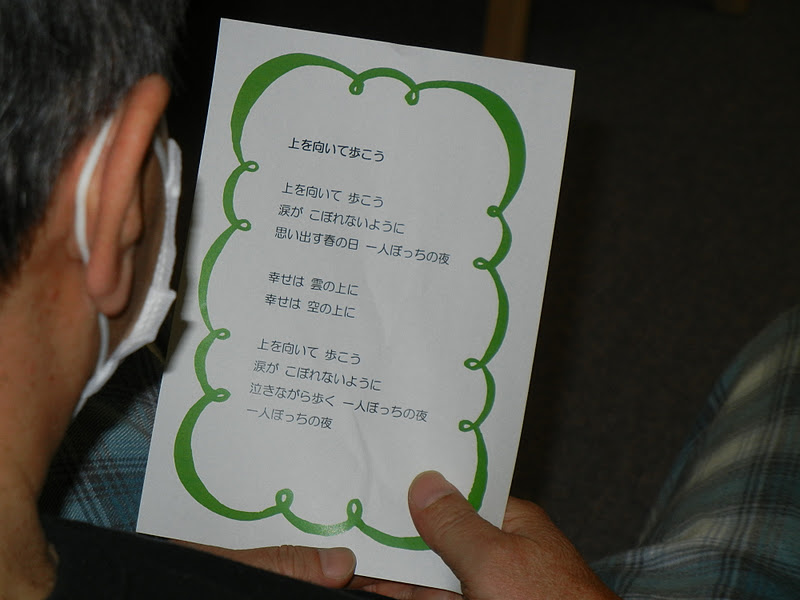 上を向いて歩こう
上を向いて 歩こう
涙が こぼれないように
思い出す春の日 一人ぼっちの夜
幸せは 雲の上に
幸せは 空の上に
上を向いて 歩こう
涙が こぼれないように
泣きながら歩く 一人ぼっちの夜
一人ぼっちの夜